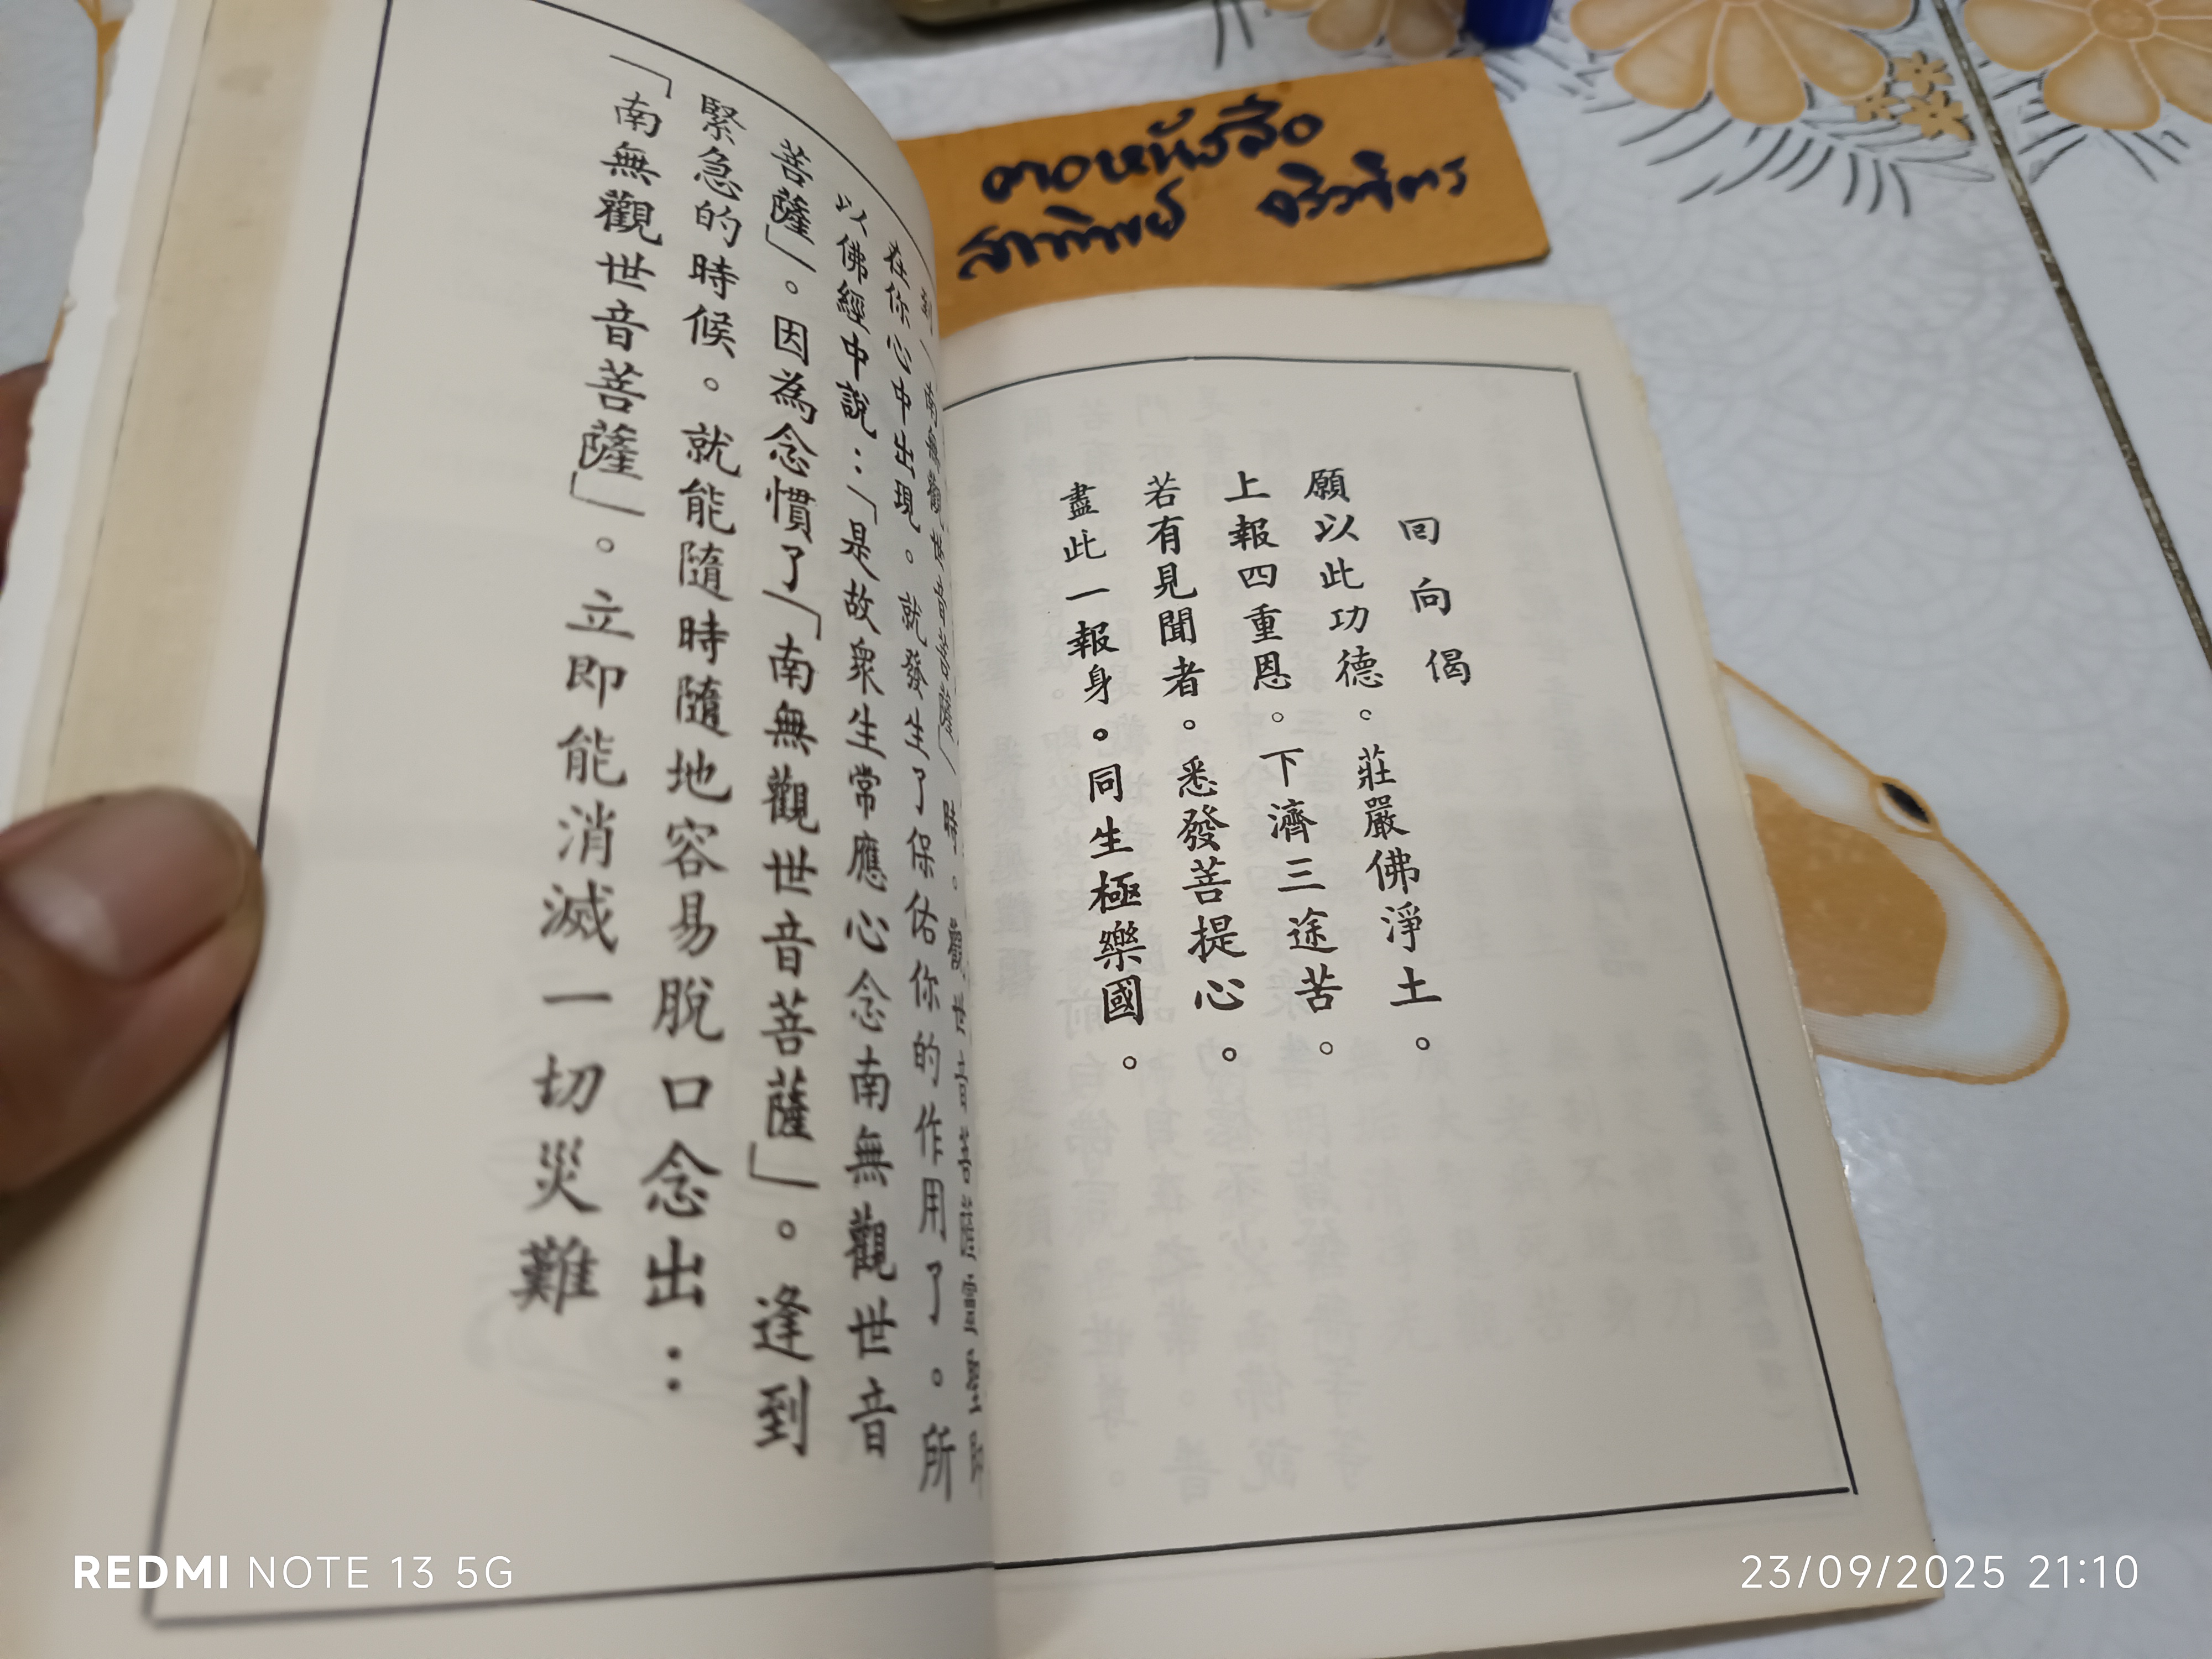 回向偈
願以此功德。莊嚴佛淨土。
上報四重恩。下濟三途苦。
若有見聞者。悉發菩提心。
盡此一報身。同生極樂國。
到「南無觀世音菩薩」時。觀世音菩薩靈聖即
在你心中出現。就發生了保佑你的作用了。所
以佛經中說：「是故衆生常應心念南無觀世音
菩薩」。因為念慣了「南無觀世音菩薩」。逢到
緊急的時候。就能隨時隨地容易脫口念出：
「南無觀世音菩薩」。立即能消滅一切災難
หนังสือ
REDMI NOTE 13 5G
23/09/2025 21:10